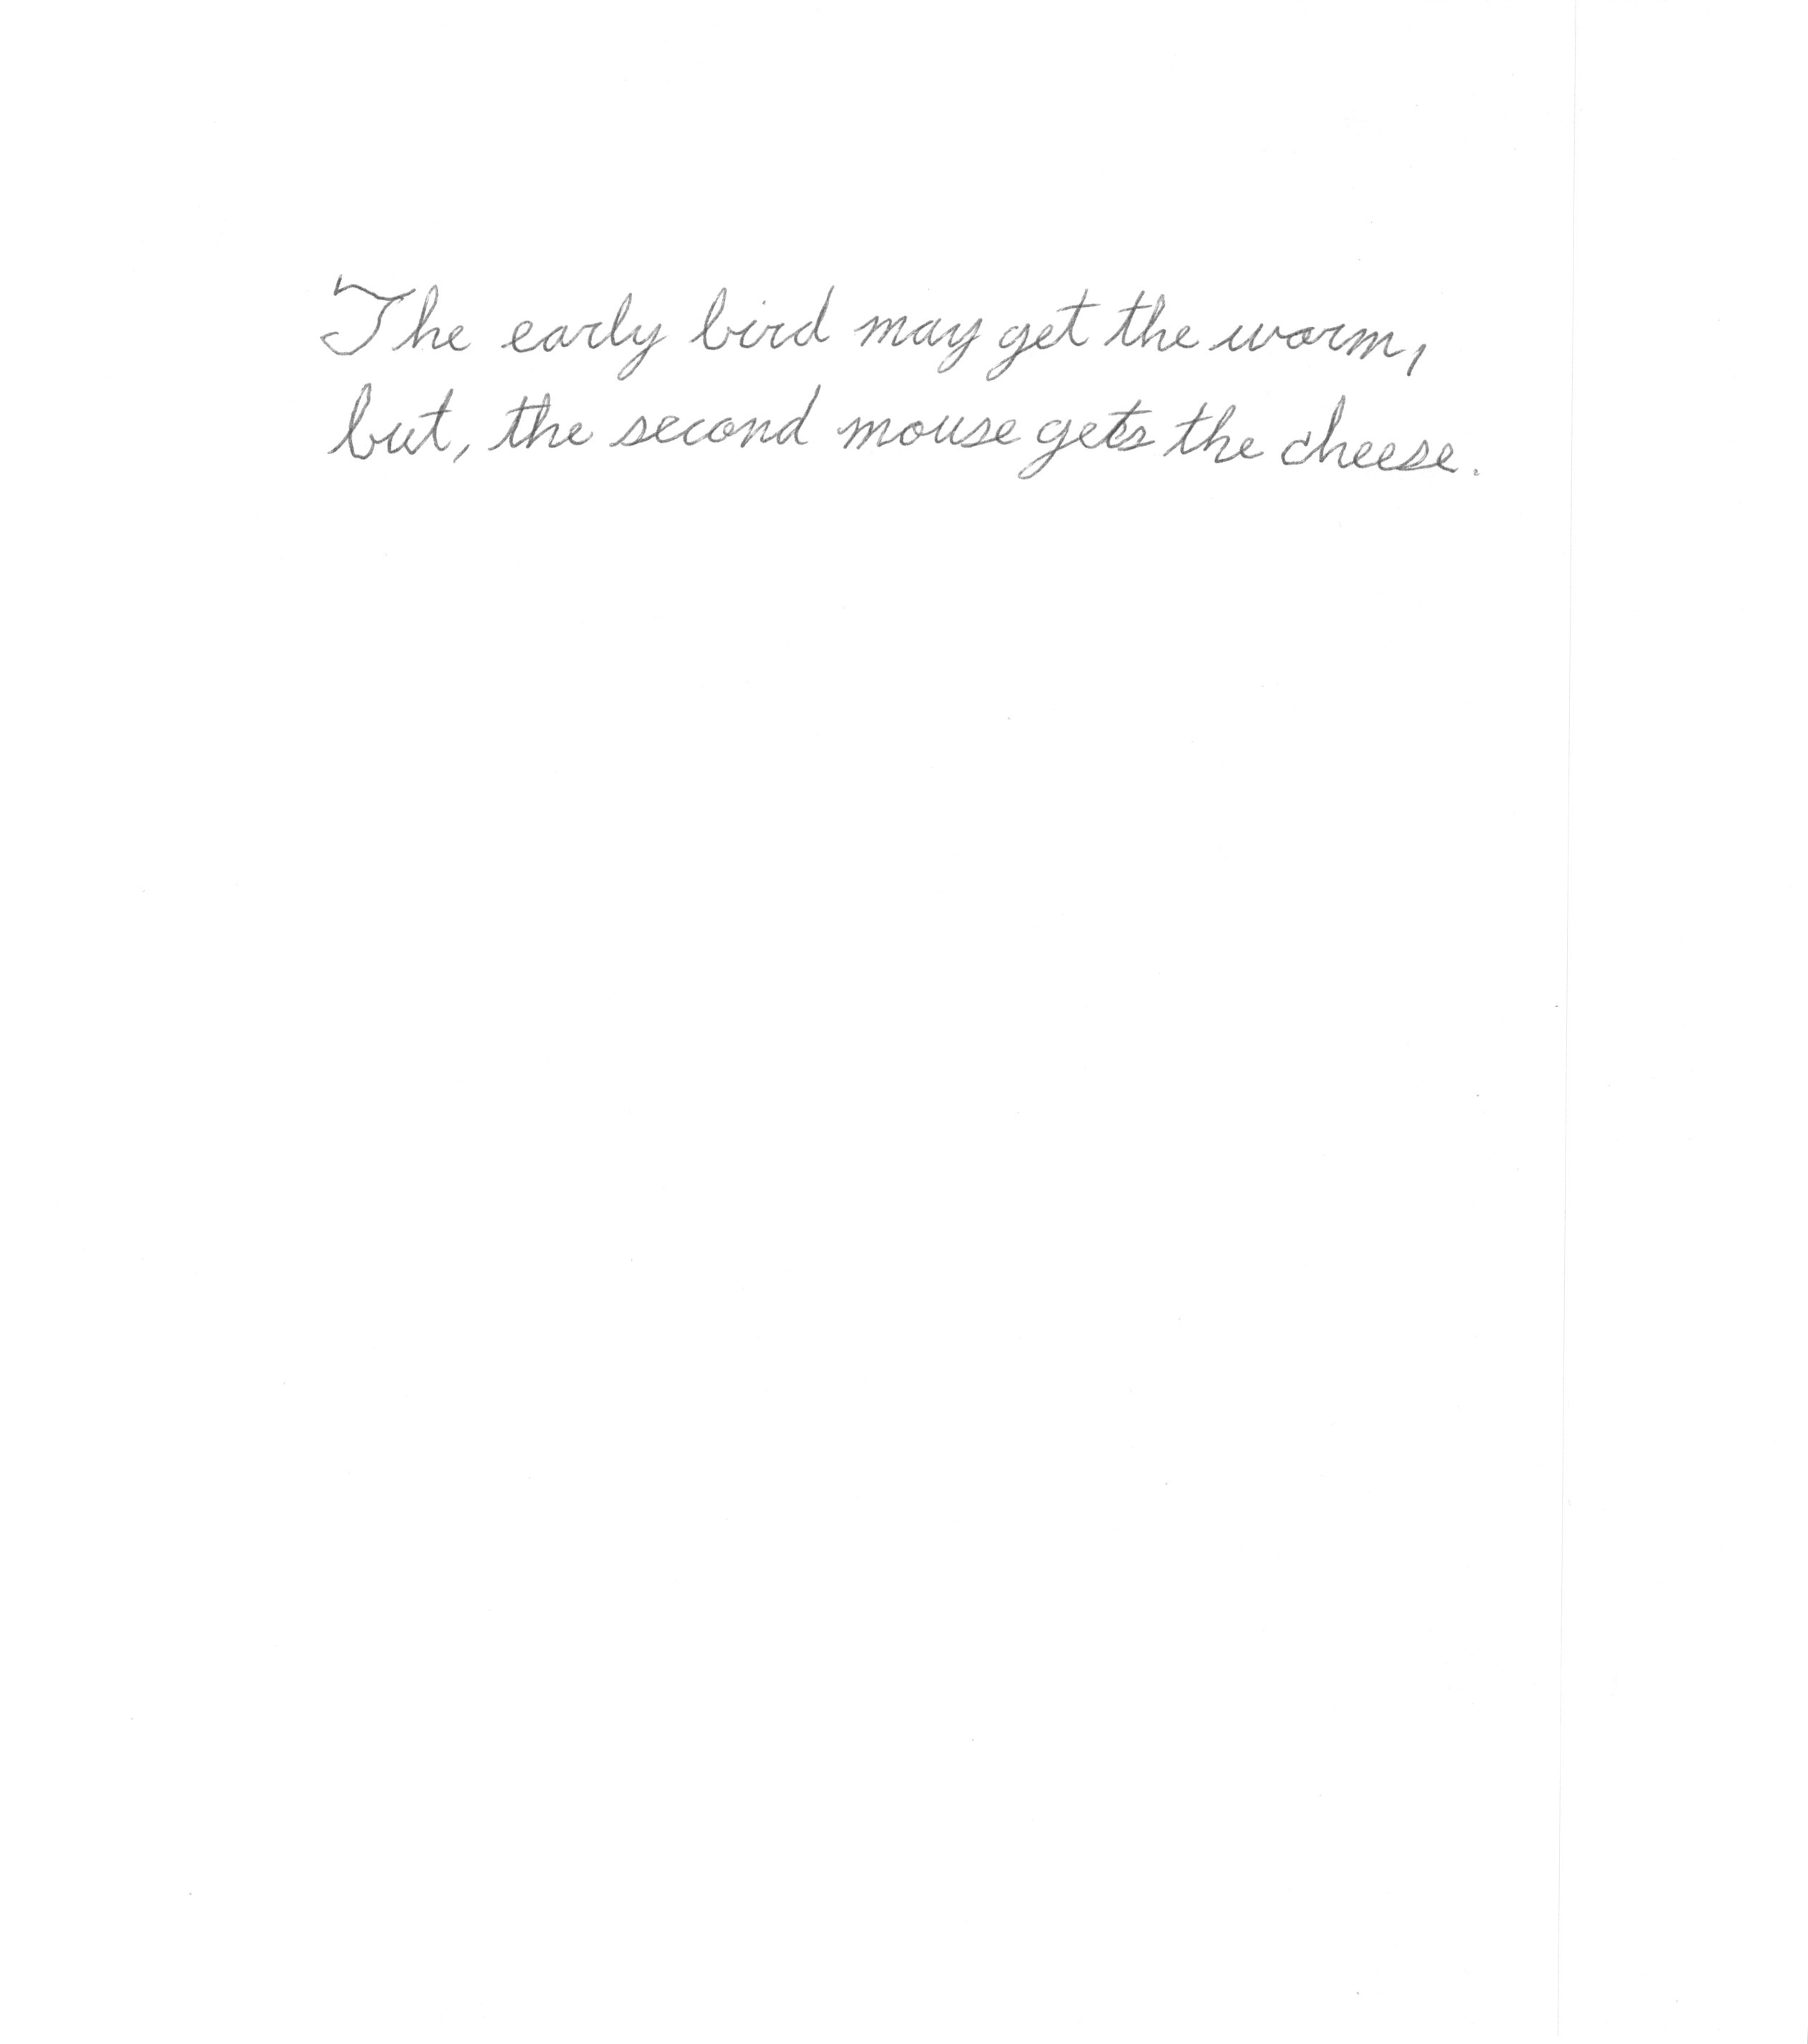 The early bird may get the worm,
but, the second mouse gets the cheese.